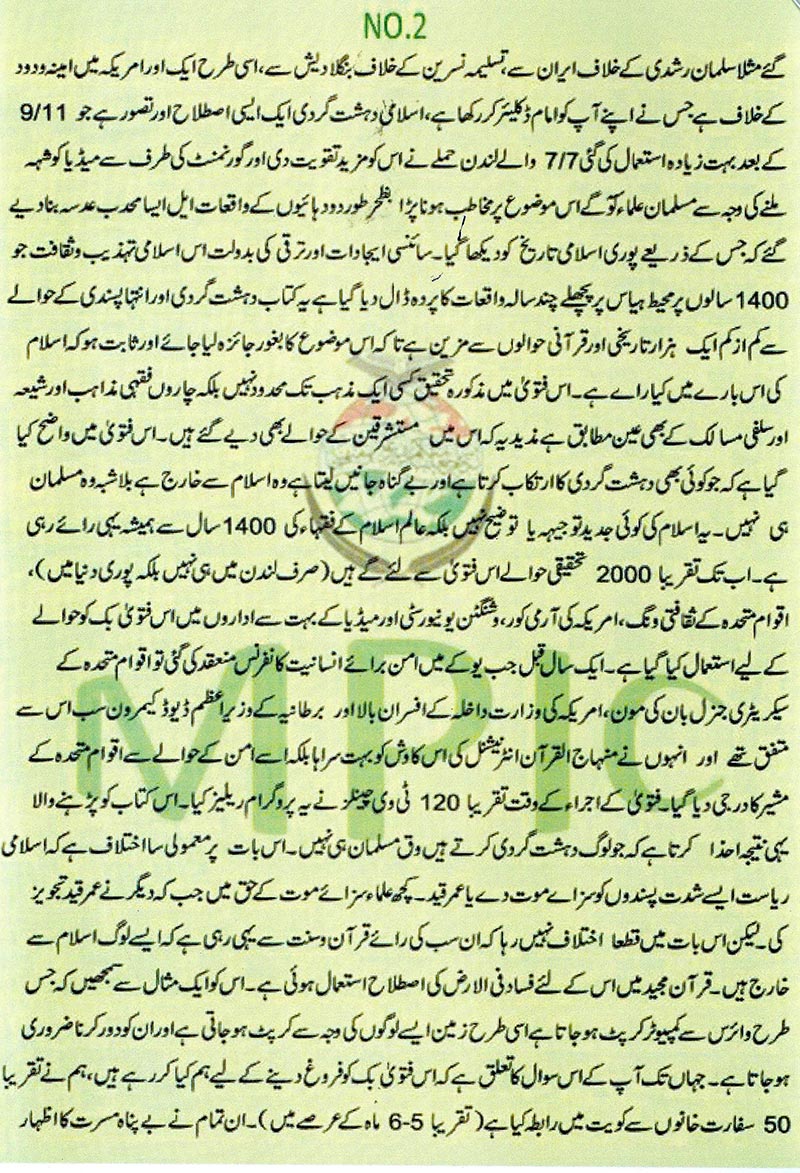 NO.2
گئے مثلا سلمان رشدی کے خلاف ایران سے، تسلیمہ نسرین کے خلاف بنگلا دیش سے، اسی طرح ایک اور امریکہ میں امینہ ودود
کے خلاف ہے جس نے اپنے آپ کو امام ڈکلیئر کر رکھا ہے، اسلامی دہشت گردی ایک ایسی اصطلاح اور تصور ہے جو 9/11
کے بعد بہت زیادہ استعمال کی گئی 7/7 والے لندن حملے نے اس کو مزید تقویت دی اور گورنمنٹ کی طرف سے میڈیا کو شہہ
ملنے کی وجہ سے مسلمان علماء کو گے اس موضوع پر مخاطب ہونا پڑا بطور دو دہائیوں کے واقعات ایل ایسا محدب عدسہ بنا دیے
گئے کہ جس کے ذریعے پوری اسلامی تاریخ کو دیکھا گیا۔ سائنسی ایجادات اور ترقی کی بدولت اس اسلامی تہذیب و ثقافت جو
1400 سالوں پر محیط ہیاس پر پچھلے چند سالہ واقعات کا پردہ ڈال دیا گیا ہے یہ کتاب دہشت گردی اور انتہا پسندی کے حوالے
سے کم از کم ایک ہزار تاریخی اور قرآنی حوالوں سے مزین ہے تا کہ اس موضوع کا بغور جائزہ لیا جائے اور ثابت ہو کہ اسلام
کی اس بارے میں کیا راے ہے۔ اس فتویٰ میں مذکورہ تحقیق کسی ایک مذہب تک محدود نہیں بلکہ چاروں فقہی مذاہب اور شیعہ
اور سلفی مسالک کے بھی عین مطابق ہے مذید یہ کہ اس میں مستشرقین کے حوالے بھی دیے گئے ہیں۔ اس فتویٰ میں واضح کیا
گیا ہے کہ جو کوئی بھی دہشت گردی کا ارتکاب کرتا ہے اور بے گناہ جانیں لیتا ہے وہ اسلام سے خارج ہے بلا شبہ وہ مسلمان
ہی نہیں۔ یہ اسلام کی کوئی جدید توجیہہ یا توضیح نہیں بلکہ عالم اسلام کے فقہاء کی 1400 سال سے ہمیشہ یہی رائے رہی
ہے۔ اب تک تقریبا 2000 تحقیقی حوالے اس فتویٰ سے لئے گے ہیں (صرف لندن میں ہی نہیں بلکہ پوری دنیا میں)،
اقوام متحدہ کے ثقافتی ونگ، امریکہ کی آرمی کور، وشنگٹن یونیورسٹی اور میڈیا کے بہت سے اداروں میں اس فتویٰ بک کو حوالے
کے لیے استعمال کیا گیا ہے۔ ایک سال قبل جب یو کے میں امن برائے انسانیت کانفرنس منعقد کی گئی تو اقوام متحدہ کے
سیکریٹری جنرل بان کی مون، امریکہ کی وزارت داخلہ کے افسران بالا اور برطانیہ کے وزیر اعظم ڈیوڈ کیمرون سب اس سے
متفق تھے اور انہوں نے منہاج القرآن انٹرنیشنل کی اس کاوش کو بہت سراہا بلکہ اسے امن کے حوالے سے اقوام متحدہ کے
مشیر کا درجی دیا گیا۔ فتویٰ کے اجراء کے وقت تقریبا 120 ٹی وی چینلز نے یہ پروگرام ریلیز کیا۔ اس کتاب کو پڑہنے والا
یہی نتیجہ اخذا کرتا ہے کہ جو لوگ دہشت گردی کرتے ہیں وق مسلمان ہی نہیں۔ اس بات پر معمولی سا اختلاف ہے کہ اسلامی
ریاست ایسے شدت پسندوں کو سزاے موت دے یا عمر قید۔ کچھ علماء سزائے موت کے حق میں جب کہ دیگر نے عمر قید تجویز
کی۔ لیکن اس بات میں قطعا اختلاف نہیں رہا کہ ان سب کی رائے قرآن و سنت سے یہی رہی ہے کہ ایسے لوگ اسلام سے
خارج ہیں۔ قرآن مجید میں اس کے لئے فساد فی الارض کی اصطلاح استعمال ہوئی ہے۔ اس کو ایک مثال سے سمجھیں کہ جس
طرح وائرس سے کمپیوٹر کرپٹ ہو جاتا ہے اسی طرح زمین ایسے لوگوں کی وجہ سے کرپٹ ہو جاتی ہے اور ان کو دور کرنا ضروری
ہو جاتا ہے۔ جہاں تک آپ کے اس سوال کا تعلق ہے کہ اس فتویٰ بک کو فروغ دینے کے لیے ہم کیا کر رہے ہیں، ہم نے تقریبا
50 سفارت خانوں سے کویت میں رابطہ کیا ہے (تقریبا 5-6 ماہ کے عرصے میں)۔ ان تمام نے بے پناہ مسرت کا اظہار
MPIC